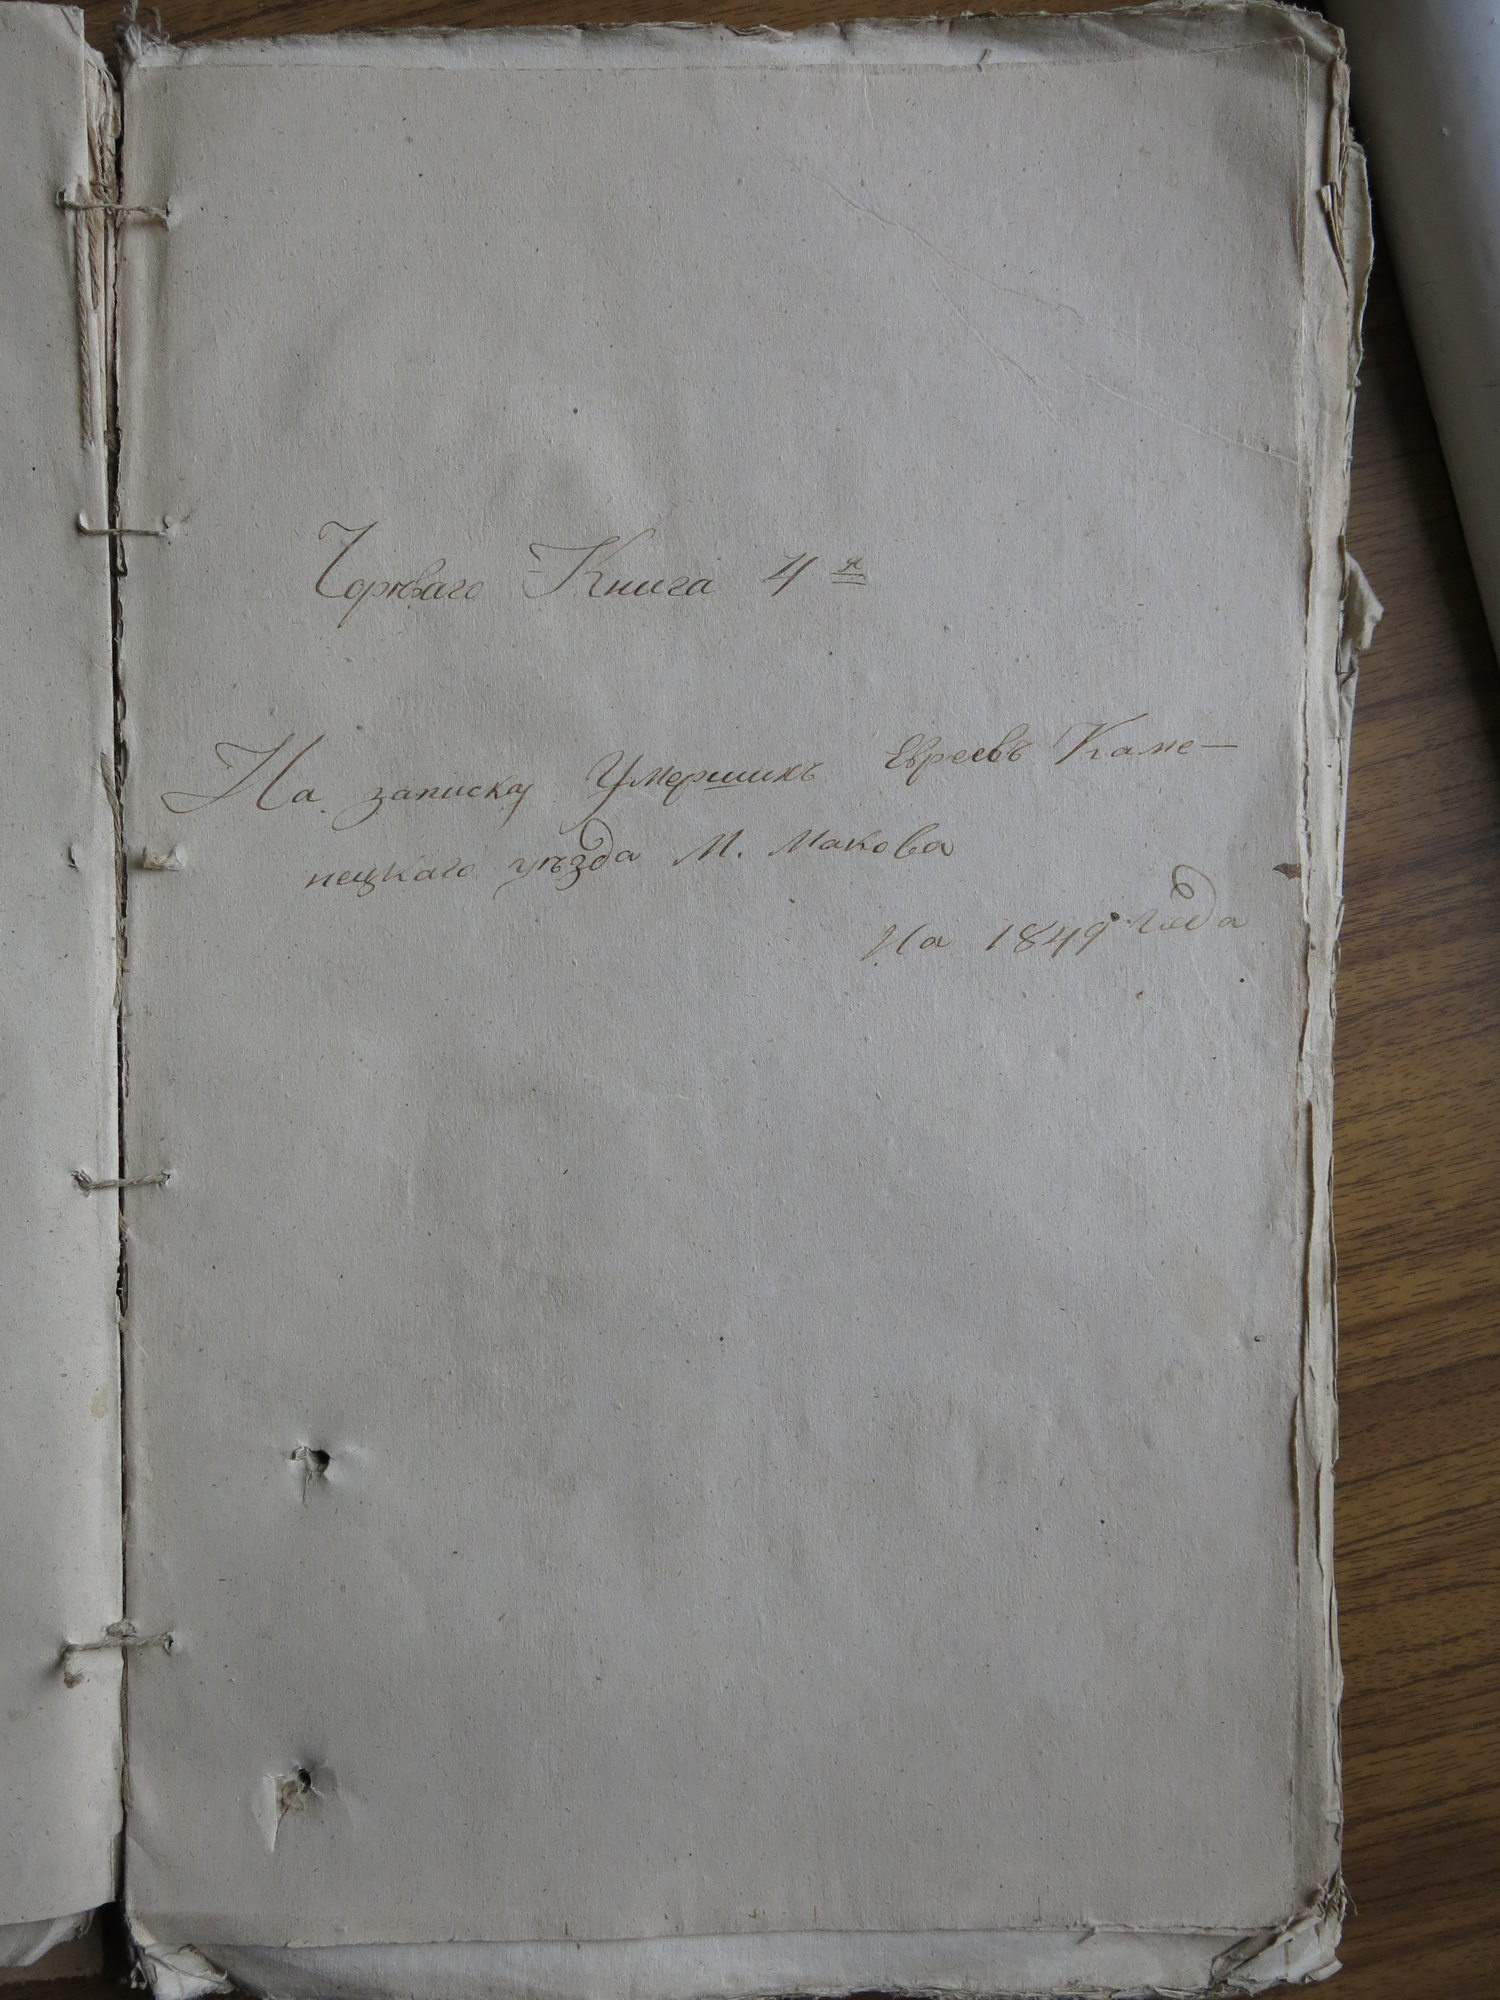 Книга 4я
На записку Умершихъ Евреевъ Каме-
нецкаго уѣзда М. Макова
На 1849 года